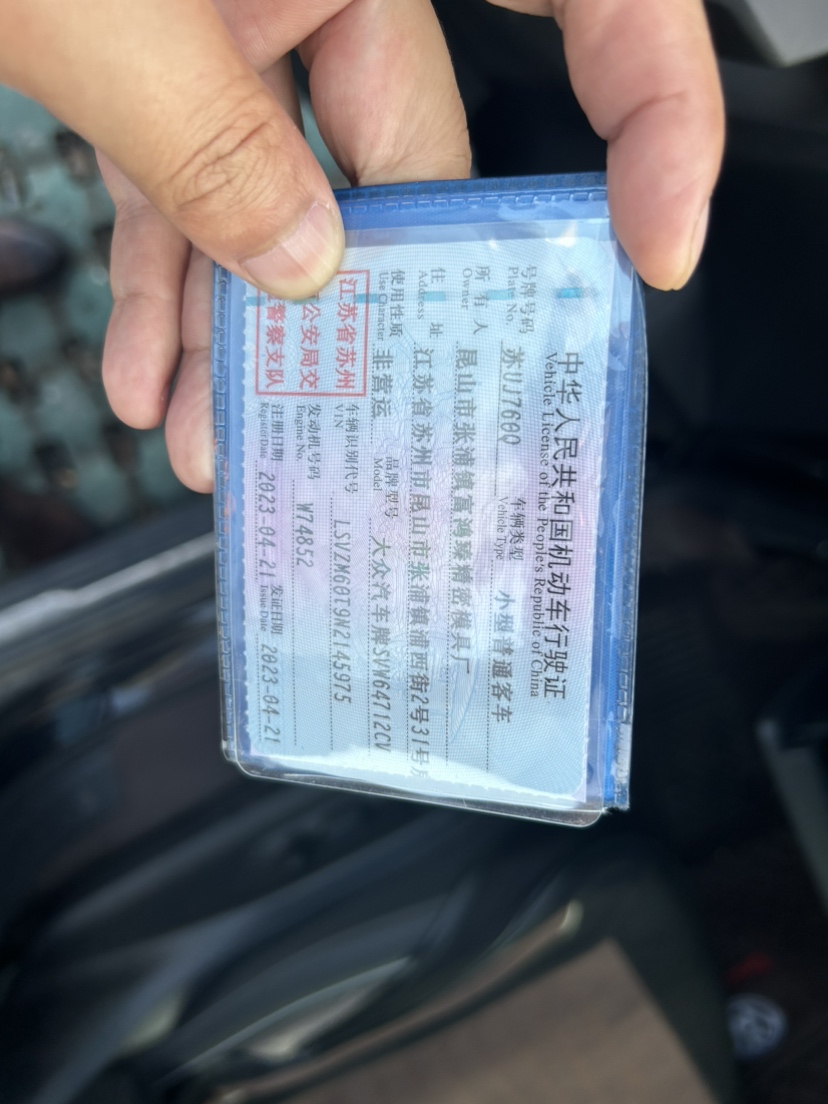 中华人民共和国机动车行驶证
Vehicle License of the People's Republic of China
号牌号码 苏UJ760Q 车辆类型 小型普通客车
Plate No. Vehicle Type
所有人 昆山市张浦镇富鸿臻精密模具厂
Owner
住址 江苏省苏州市昆山市张浦镇浦西街2号31号房
Address
使用性质 非营运 品牌型号 大众汽车牌SVW64712CV
Use Character Model
江苏省苏州 车辆识别代号 LSVZM60T9N2145975
VIN
公安局交 发动机号码 W74852
Engine No.
警察支队 注册日期 2023-04-21 发证日期 2023-04-21
Register Date Issue Date